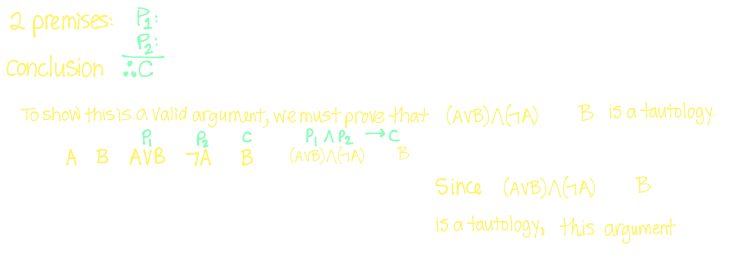 2 premises: P₁:
P₂:
conclusion ∴C
To show this is a valid argument, we must prove that (A∨B)∧(¬A) B is a tautology
P₁ P₂ C P₁ ∧ P₂ → C
A B A∨B ¬A B (A∨B)∧(¬A) B
Since (A∨B)∧(¬A) B
is a tautology, this argument